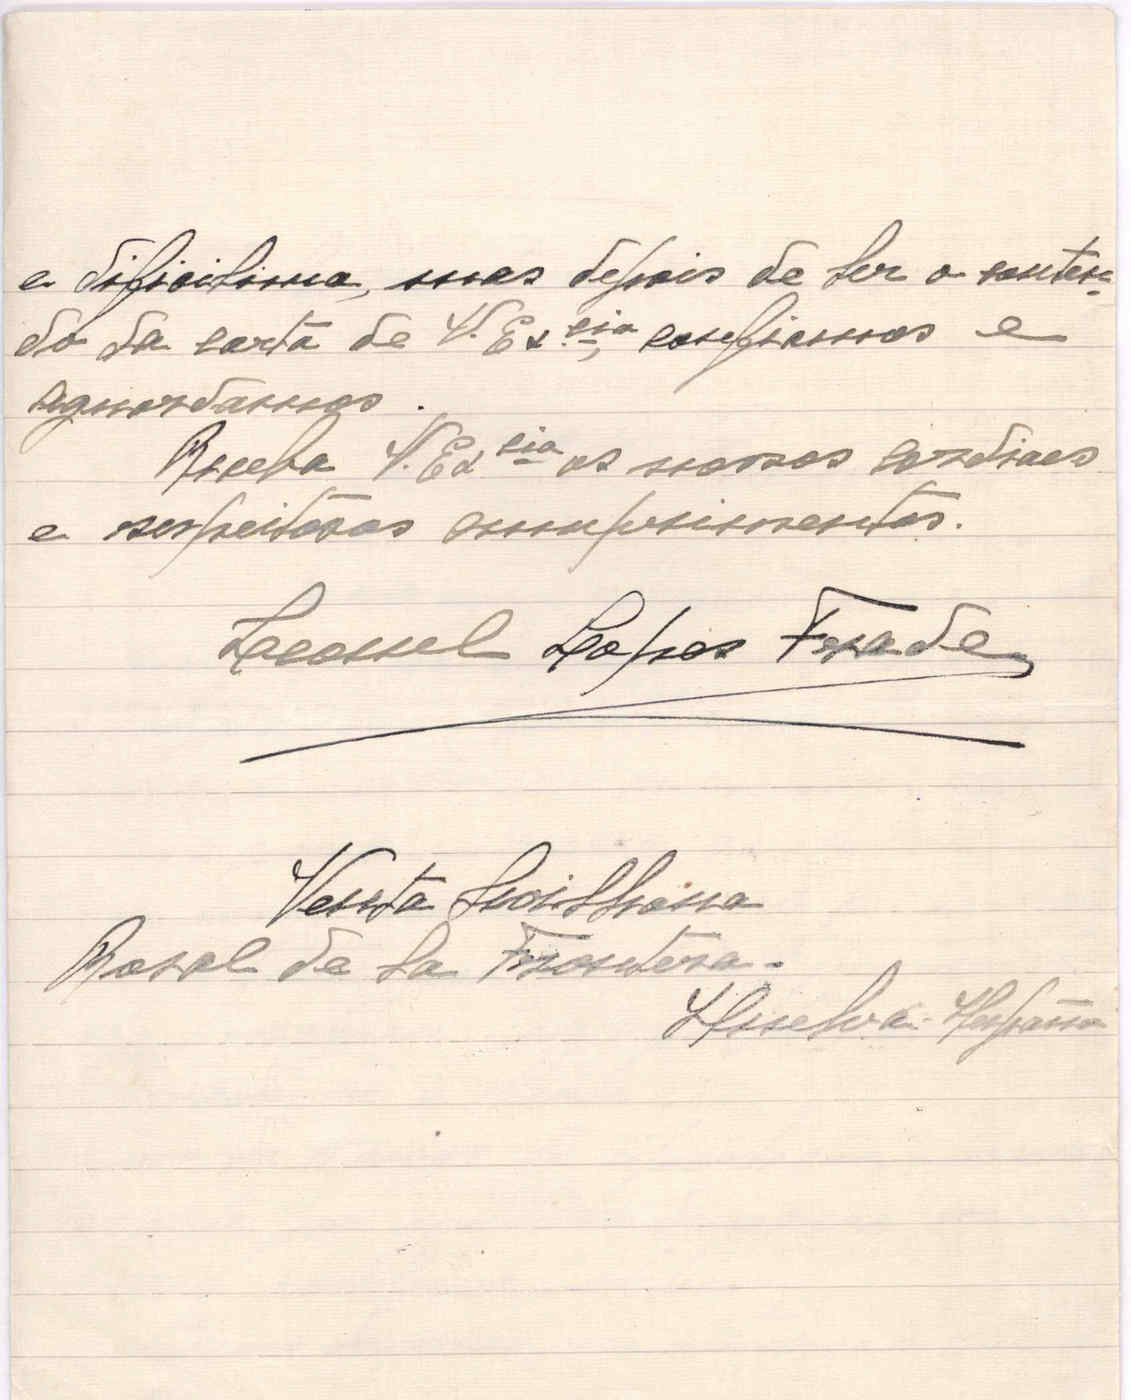 e dificilima, mas depois de ler o conteu-
do da carta de V. Ex.cia, confiamos e
aguardamos.
Receba V. Excia os nossos cordiaes
e respeitosos cumprimentos.
Lopes Frade
Venta
Rosal de la Frontera -
Huelva - Hespanha